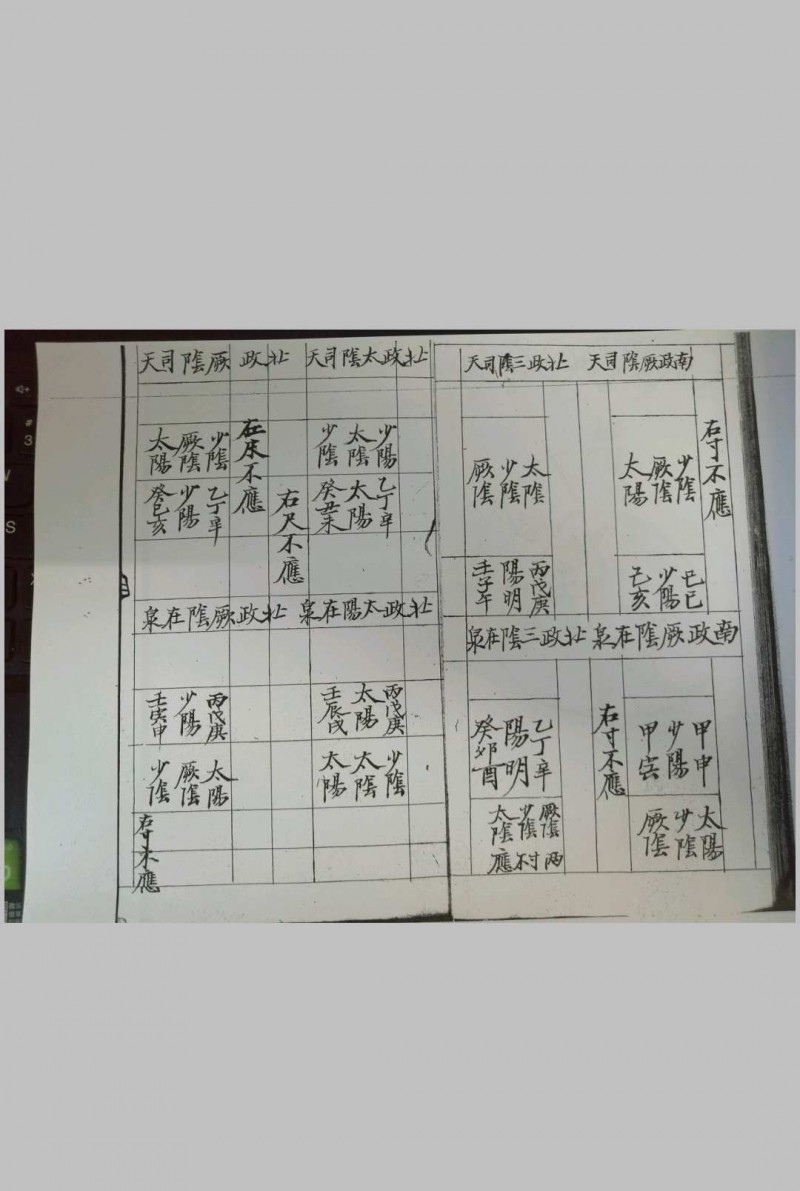 南政厥陰司天
北政三陰司天
右寸不應
少陰
厥陰
太陽
己巳
少陽
己亥
太陰
少陰
厥陰
丙戊庚
陽明
壬子午
南政厥陰在泉
北政三陰在泉
甲申
少陽
甲寅
太陽
少陰
厥陰
右寸不應
乙丁辛
陽明
癸卯酉
厥陰
少陰
太陰
兩寸不應
北政太陰司天
北政厥陰司天
少陽
太陰
少陰
乙丁辛
太陽
癸丑未
右尺不應
不應
少陰
厥陰
太陽
乙丁辛
少陽
癸巳亥
北政太陽在泉
北政厥陰在泉
丙戊庚
太陽
壬辰戌
少陰
太陰
太陽
丙戊庚
少陽
壬寅申
太陽
厥陰
少陰
右寸不應